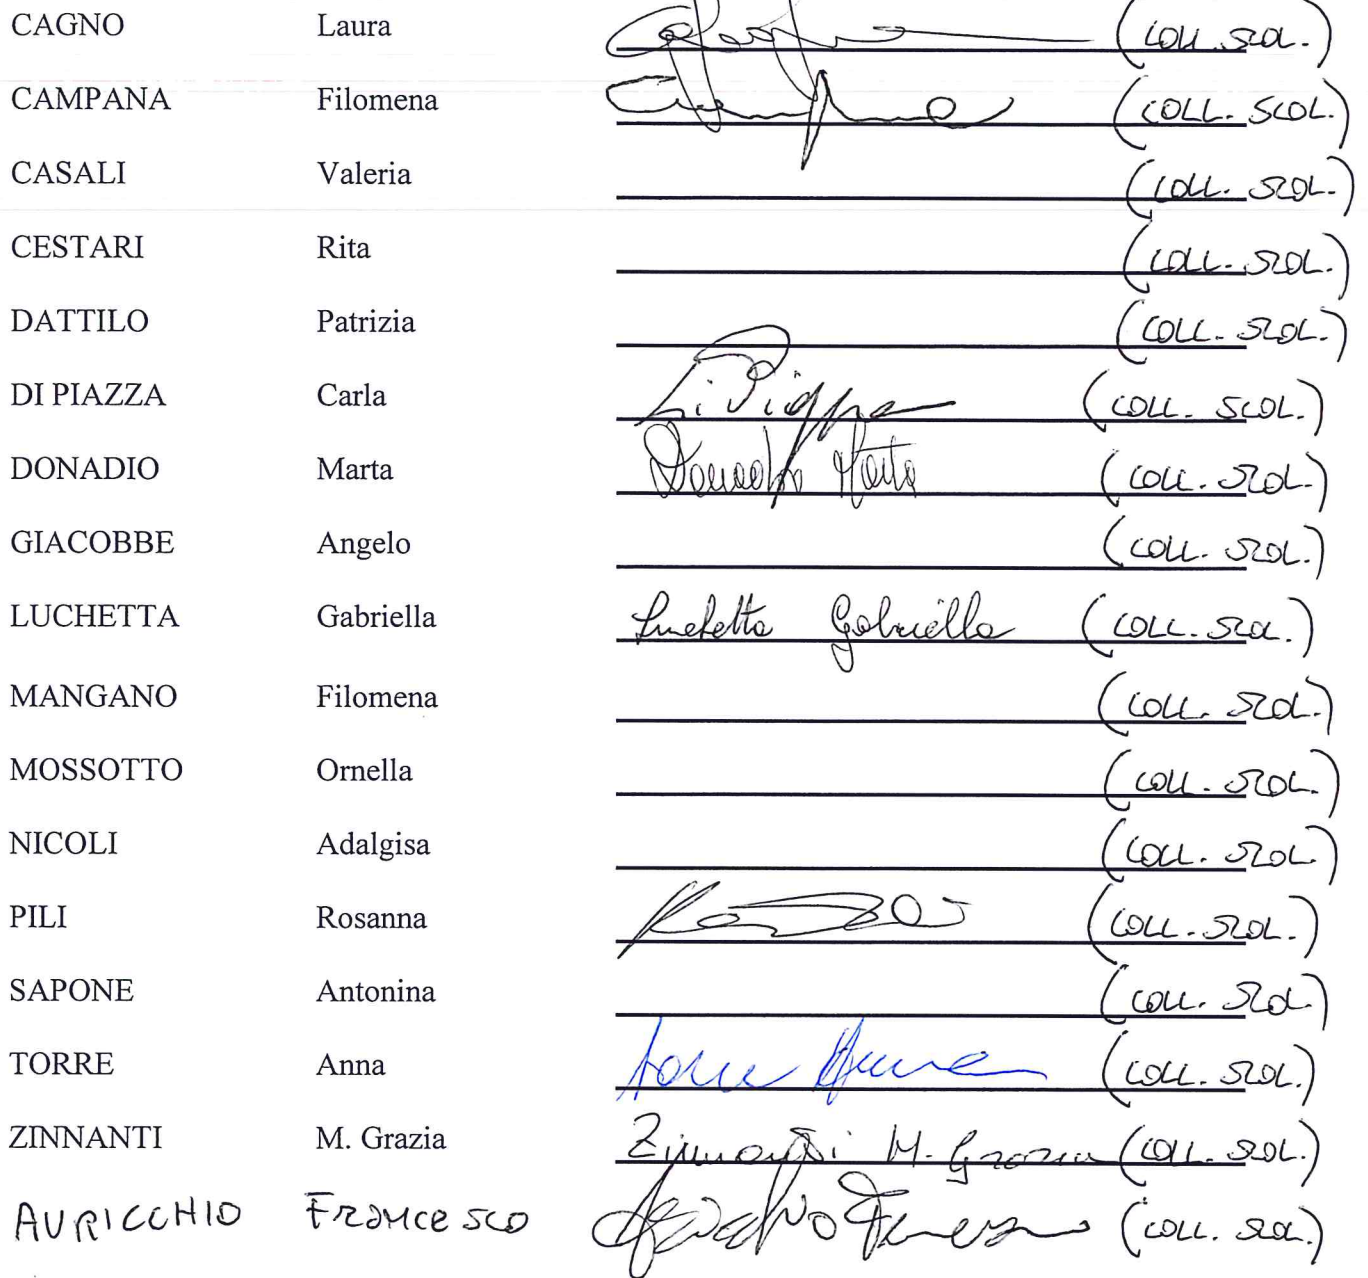 CAGNO Laura (COLL. SCOL.)
CAMPANA Filomena (COLL. SCOL.)
CASALI Valeria (COLL. SCOL.)
CESTARI Rita (COLL. SCOL.)
DATTILO Patrizia (COLL. SCOL.)
DI PIAZZA Carla Di Piazza (COLL. SCOL.)
DONADIO Marta Donadio Marta (COLL. SCOL.)
GIACOBBE Angelo (COLL. SCOL.)
LUCHETTA Gabriella Luchetta Gabriella (COLL. SCOL.)
MANGANO Filomena (COLL. SCOL.)
MOSSOTTO Ornella (COLL. SCOL.)
NICOLI Adalgisa (COLL. SCOL.)
PILI Rosanna (COLL. SCOL.)
SAPONE Antonina (COLL. SCOL.)
TORRE Anna Torre Anna (COLL. SCOL.)
ZINNANTI M. Grazia Zinnanti M. Grazia (COLL. SCOL.)
AURICCHIO FRANCESCO Auricchio Francesco (COLL. SCOL.)